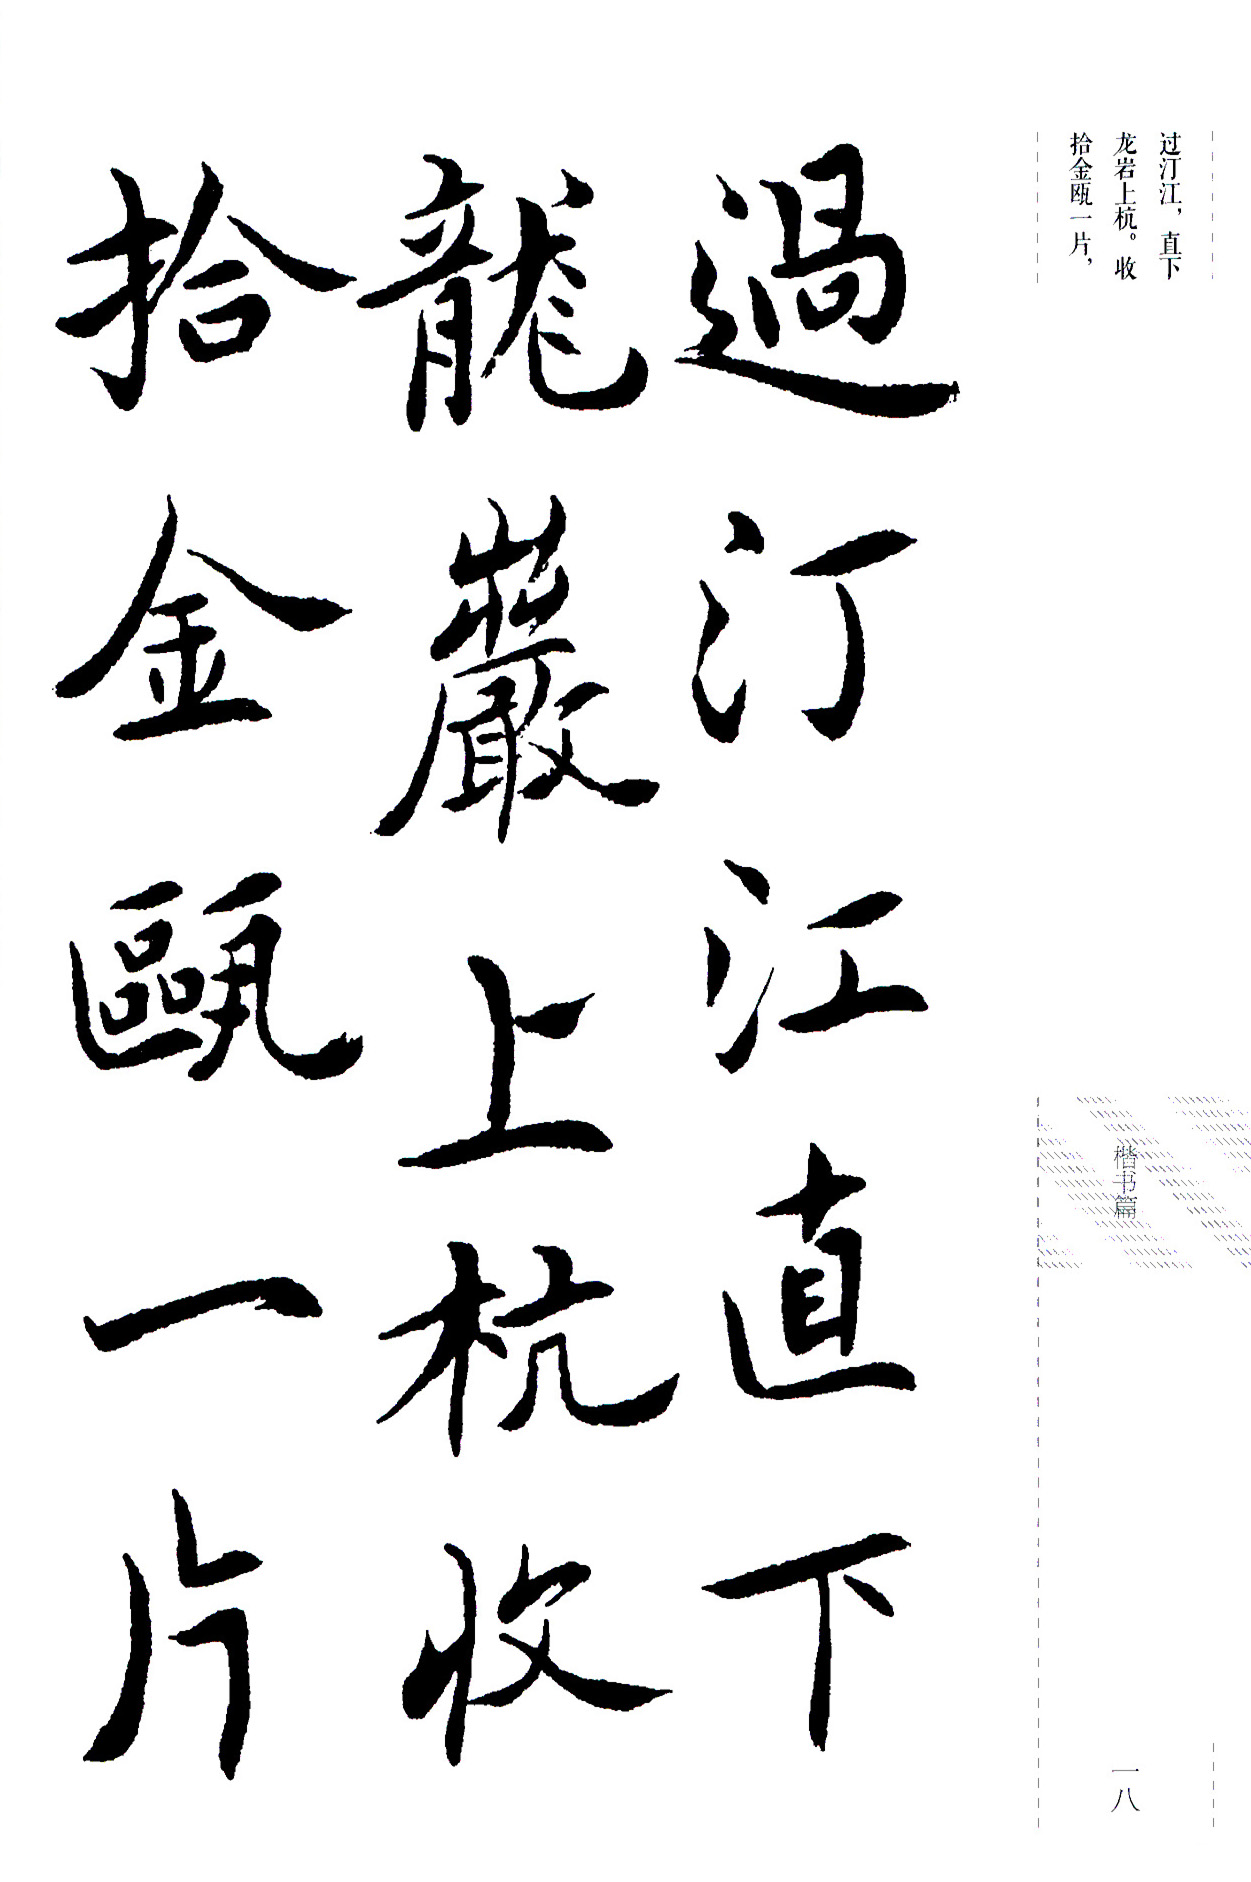 过汀江，直下
龙岩上杭。收
拾金瓯一片，
過汀江直下
龍巖上杭收
拾金甌一片
楷书篇
一八